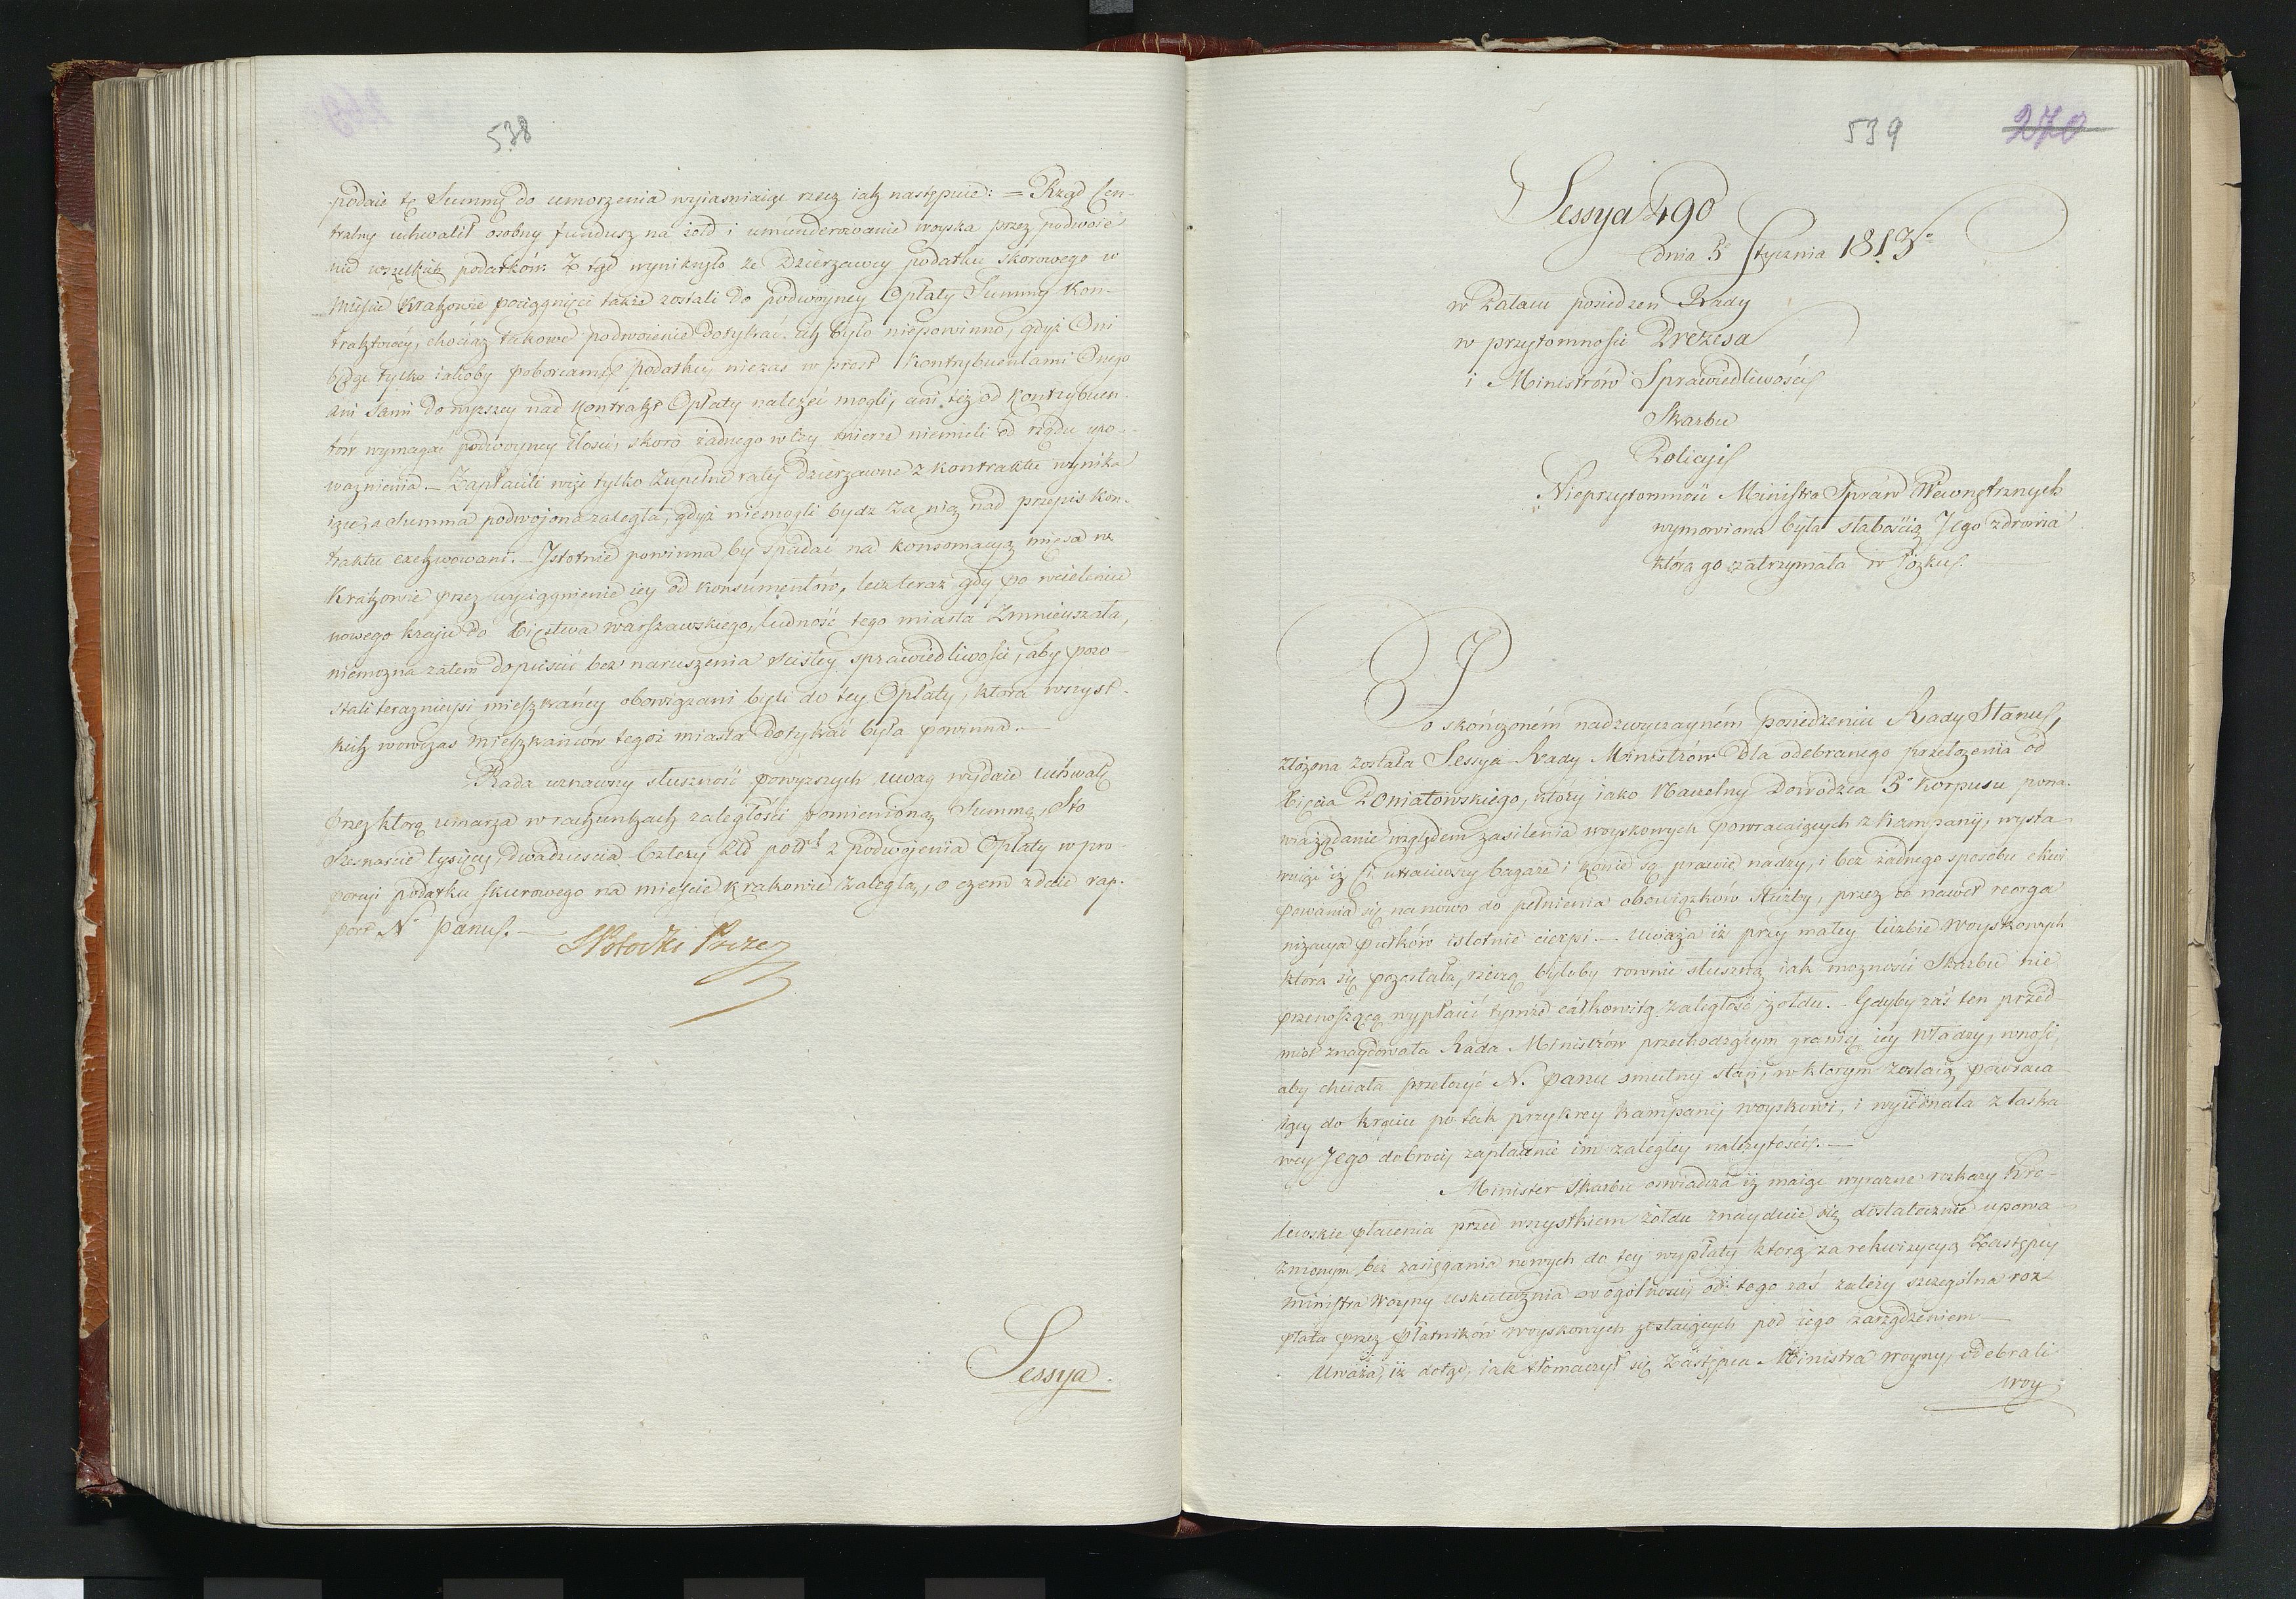 538
podaie tę Summę do umorzenia wyiaśniaiąc rzecz iak następuie: = Rząd Cen-
tralny uchwalił osobny fundusz na żołd i umunderowanie woyska przez podwoie-
nie wszelkich podatków. Z tąd wyniknęło że Dzierzawcy podatku skorowego w
Mieście Krakowie pociągnięci także zostali do podwoyney Opłaty Summy Kon-
traktowéy, chociaż takowe podwoienie dotykać ich było niepowinno, gdyż Oni
będąc tylko iakoby poborcami podatku, niezaś w prost Kontrybuentami Onego
ani sami do wyższey nad Kontrakt Opłaty należeć mogli, ani też od Kontrybuen-
tów wymagać podwoyney ilości, skoro żadnego w tey mierze niemieli od rządu upo-
ważnienia. — Zapłacili więc tylko zupełne raty Dzierzawne z kontraktu wynika
iące, a Summa podwojona zaległa, gdyż niemogli bydz za nią nad przepis kon-
traktu exekwowani. — Istotnie powinna by spadać na konsomacyą mięsa w
Krakowie przez wyciągnienie iey od konsumentów, lecz teraz gdy po wcieleniu
nowego kraju do Xięstwa Warszawskiego, ludność tego miasta zmnieyszała,
niemożna zatem dopuścić bez naruszenia ścisłey sprawiedliwości, aby pozo-
stali teraznieysi mieszkańcy obowiązani byli do tey Opłaty, która wszyst-
kich wowczas mieszkańców tegoż miasta dotykać była powinna. —
Rada uznawszy słuszność powyższych uwag wydaie uchwałę
przez którą umarza w rachunkach zaległości pomienioną Summę, Sto
Szesnaście tysięcy, dwadzieścia cztery Złł pol. z podwojenia Opłaty w pro-
porcyi podatku skurowego na mieście Krakowie zaległą, o czem zdaie rap-
port N. Panu. —
SPotocki Prezes
Sessya.
539
270
Sessya 490
dnia 3 Stycznia 1813.
w Pałacu posiedzeń Rady
w przytomności Prezesa
i Ministrów Sprawiedliwości
Skarbu
Policyi
Nieprzytomność Ministra Spraw Wewnętrznych
wymowiona była słabością Jego zdrowia
która go zatrzymała w łóżku. —
Po skończoném nadzwyczayném posiedzeniu Rady Stanu,
złożona została Sessya Rady Ministrów dla odebranego przełożenia od
Xięcia Poniatowskiego, który iako Naczelny Dowódzca 5° Korpusu pona-
wia żądanie względem zasilenia woyskowych powracaiących z kampanij, wysta
wuiąc iż Ci utraciwszy bagaże i konie są prawie nadzy, i bez żadnego sposobu ekwi
powania się na nowo do pełnienia obowiązków służby, przez co nawet reorga
nizacya pułków istotnie cierpi. — Uważa iż przy małey liczbie Woyskowych
która się pozostała, rzeczą byłoby rownie słuszną iak możność Skarbu nie
przenoszącą wypłacić tymże całkowitą zaległość żołdu. — Gdyby zaś ten przed-
miot znaydowała Rada Ministrów przechodzącym granicę iey Władzy, wnosi,
aby chciała przełożyć N. Panu smutny stan, w którym zostaią powraca
iący do kraiu po tak przykrey kampanij woyskowi, i wyiednała z łaska
wey Jego dobroci, zapłacenie im zaległey należytości. —
Minister Skarbu oswiadcza iż maiąc wyrazne rozkazy Kró-
lewskie płacenia przed wszystkiem żołdu znayduie się dostatecznie upowa
żnionym bez zasięgania nowych do tey wypłaty którą za rekwizycyą Zastępcy
Ministra Woyny uskutecznia w ogólności, od tego zaś zależy szczególna roz-
płata przez płatników woyskowych zostaiących pod iego zarządzeniem —
Uważa, iż dotąd, iak tłomaczył się Zastępca Ministra Woyny, odebrali
woy